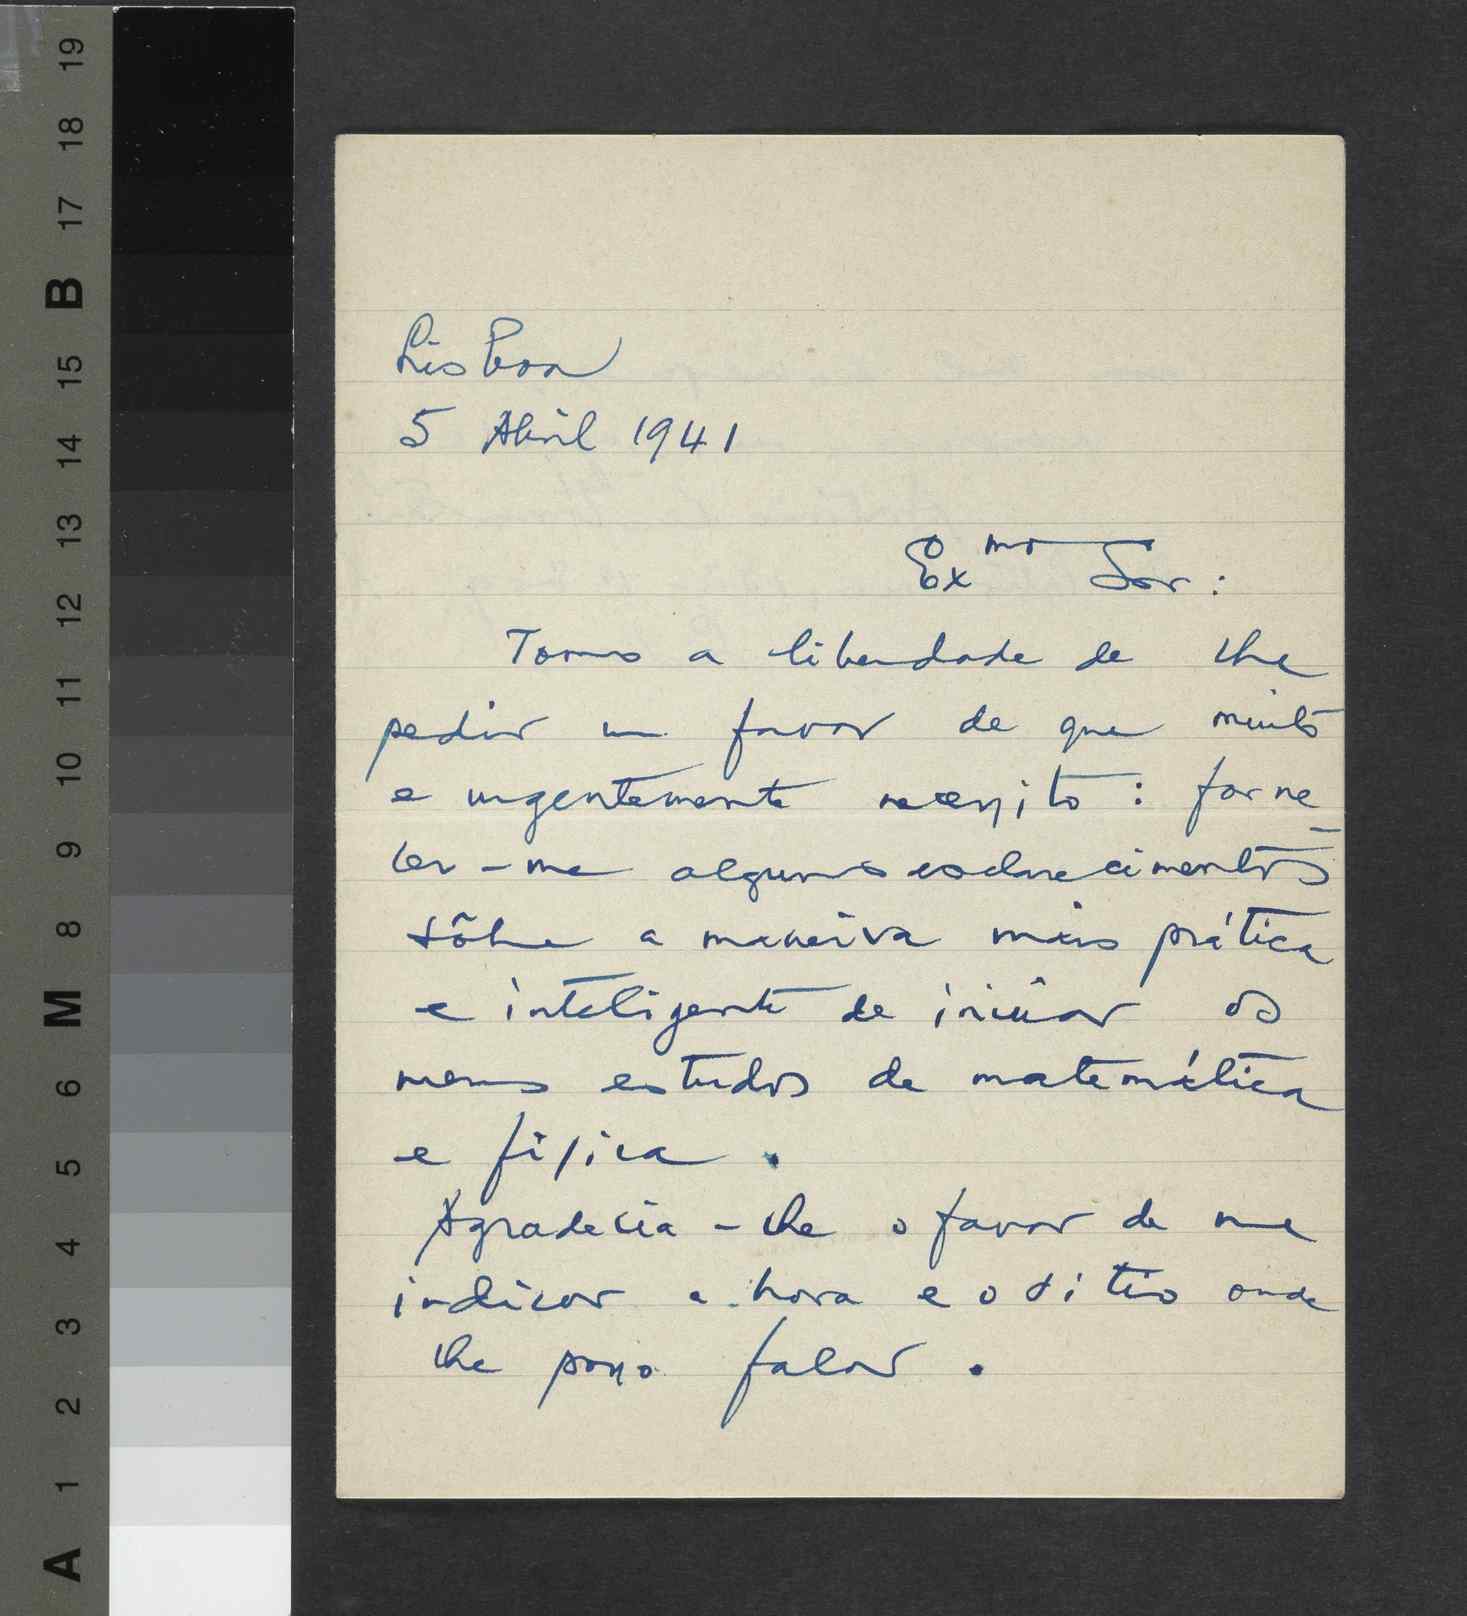 19
18
17
B
15
14
13
12
11
10
9
8
M
6
5
4
3
2
1
A
Lisboa
5 Abril 1941
Exmo Snr:
Tomo a liberdade de lhe
pedir um favor de que muito
e urgentemente necessito: forne
cer-me alguns esclarecimentos
sôbre a maneira mais prática
e inteligente de iniciar os
meus estudos de matemática
e física.
Agradecia-lhe o favor de me
indicar a hora e o sítio onde
lhe posso falar.